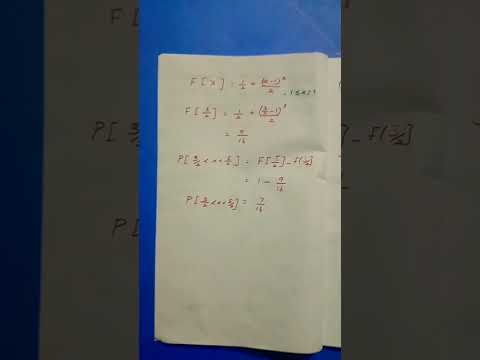 F[x] = 1/2 + (x-1)²/2
F[3/2] = 1/2 + (3/2 - 1)²/2
= 9/16
P[3/2 < x < 5/2] = F[5/2] - f(3/2)
= 1 - 9/16
P[3/2 < x < 5/2] = 7/16